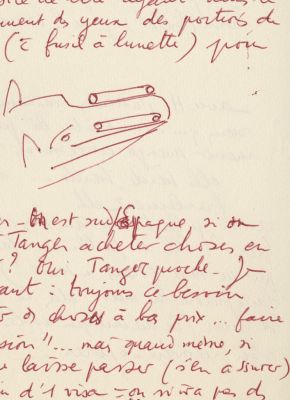 ment ds yeux des portions de
(à fusil à lunette) pour
est sud Espagne, si on
Tanger acheter choses en
? Oui, Tanger proche - Je
ant : toujours ce besoin
choses à bas prix... faire
sion"... mais quand même, si
laisse passer (s'en assurer)
d'1 visa = on n'ira pas ds